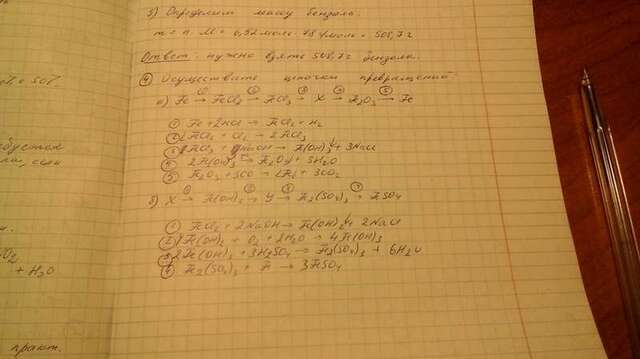 и = 50г
ла, соли
O₂
+ H₂O
практ.
3) Определим массу бензола.
m = n · M = 78 г/моль = 508,7 г
Ответ: нужно взять 508,7 г бензола.
④ Осуществить цепочки превращений:
а) Fe ①→ FeCl₂ ②→ FeCl₃ ③→ X ④→ Fe₂O₃ ⑤→ Fe
① Fe + 2HCl → FeCl₂ + H₂
② 2FeCl₂ + Cl₂ → 2FeCl₃
③ FeCl₃ + 3NaOH → Fe(OH)₃↓ + 3NaCl
④ 2Fe(OH)₃ → Fe₂O₃ + 3H₂O
⑤ Fe₂O₃ + 3CO → 2Fe + 3CO₂
б) X ①→ Fe(OH)₂ ②→ Y ③→ Fe₂(SO₄)₃ ④→ FeSO₄
① FeCl₂ + 2NaOH → Fe(OH)₂↓ + 2NaCl
② 4Fe(OH)₂ + O₂ + 2H₂O → 4Fe(OH)₃
③ 2Fe(OH)₃ + 3H₂SO₄ → Fe₂(SO₄)₃ + 6H₂O
④ Fe₂(SO₄)₃ + Fe → 3FeSO₄